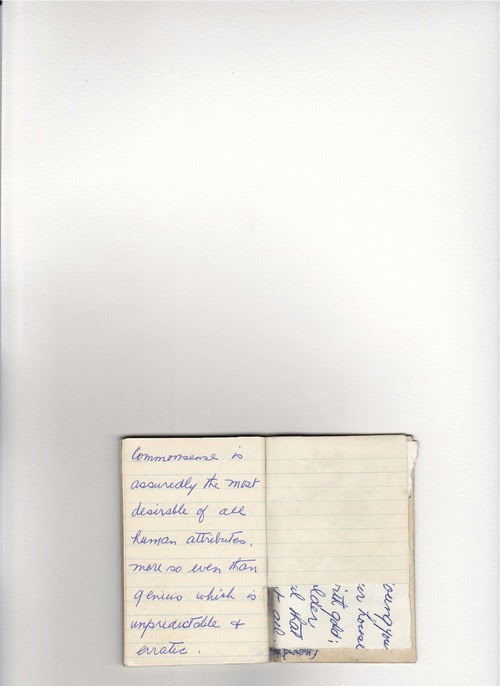 Commonsense is
assuredly the most
desirable of all
human attributes,
more so even than
genius which is
unpredictable +
erratic.
young you
er house
ith gold;
lder
l that
t all